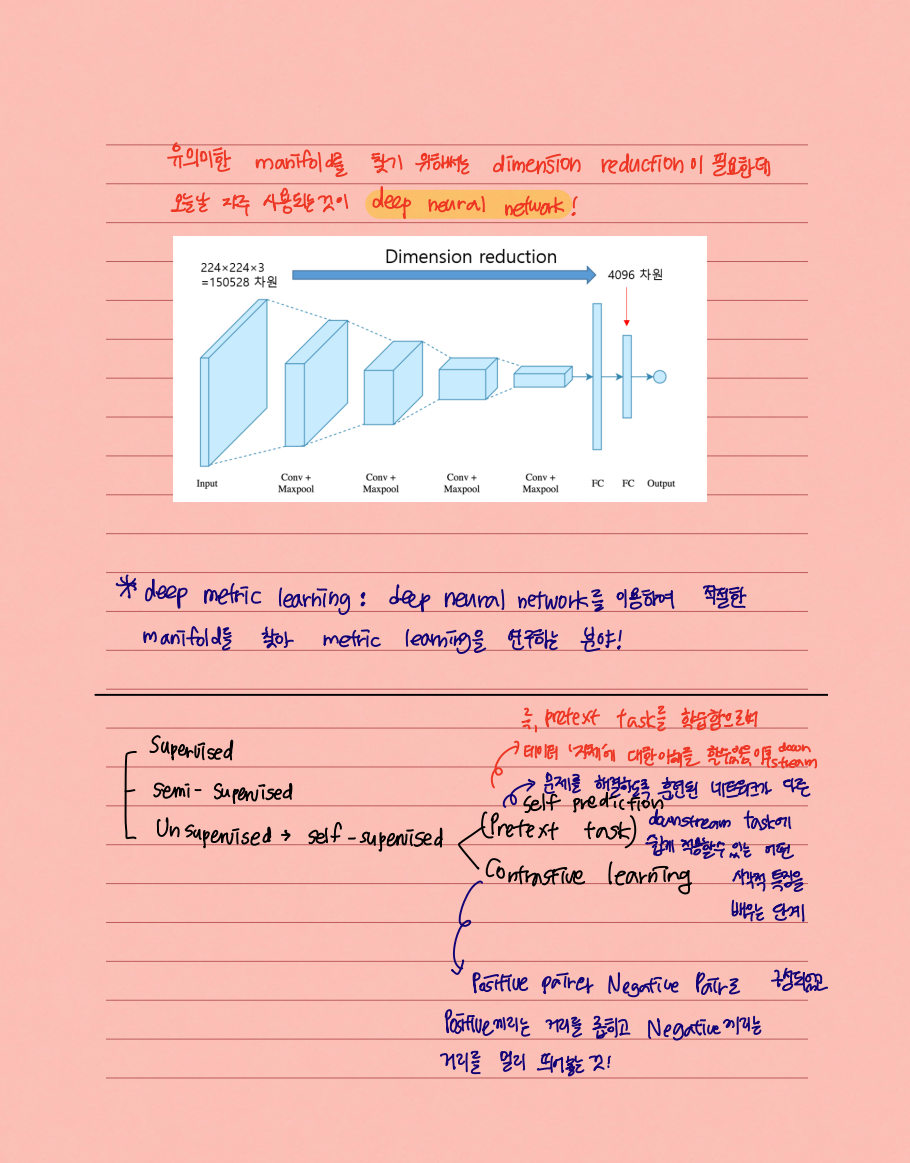 유의미한 manifold를 찾기 위해서는 dimension reduction이 필요한데
오늘날 자주 사용되는것이 deep neural network!
Dimension reduction
224×224×3
=150528 차원
4096 차원
Input
Conv +
Maxpool
Conv +
Maxpool
Conv +
Maxpool
Conv +
Maxpool
FC
FC
Output
* deep metric learning : deep neural network를 이용하여 적절한
manifold를 찾아 metric learning을 연구하는 분야!
Supervised
semi-supervised
Unsupervised → self-supervised
즉, pretext task를 학습함으로써
데이터 '자체'에 대한이해를 할수있음 이후 down
stream
문제를 해결하도록 훈련된 네트워크가 다른
self prediction
(Pretext task)
downstream task에
쉽게 적용할수 있는 어떤
시각적 특징을
배우는 단계
Contrastive learning
Positive pair와 Negative Pair로 구성되있고
Positive끼리는 거리를 좁히고 Negative끼리는
거리를 멀리 띄어놓는 것!